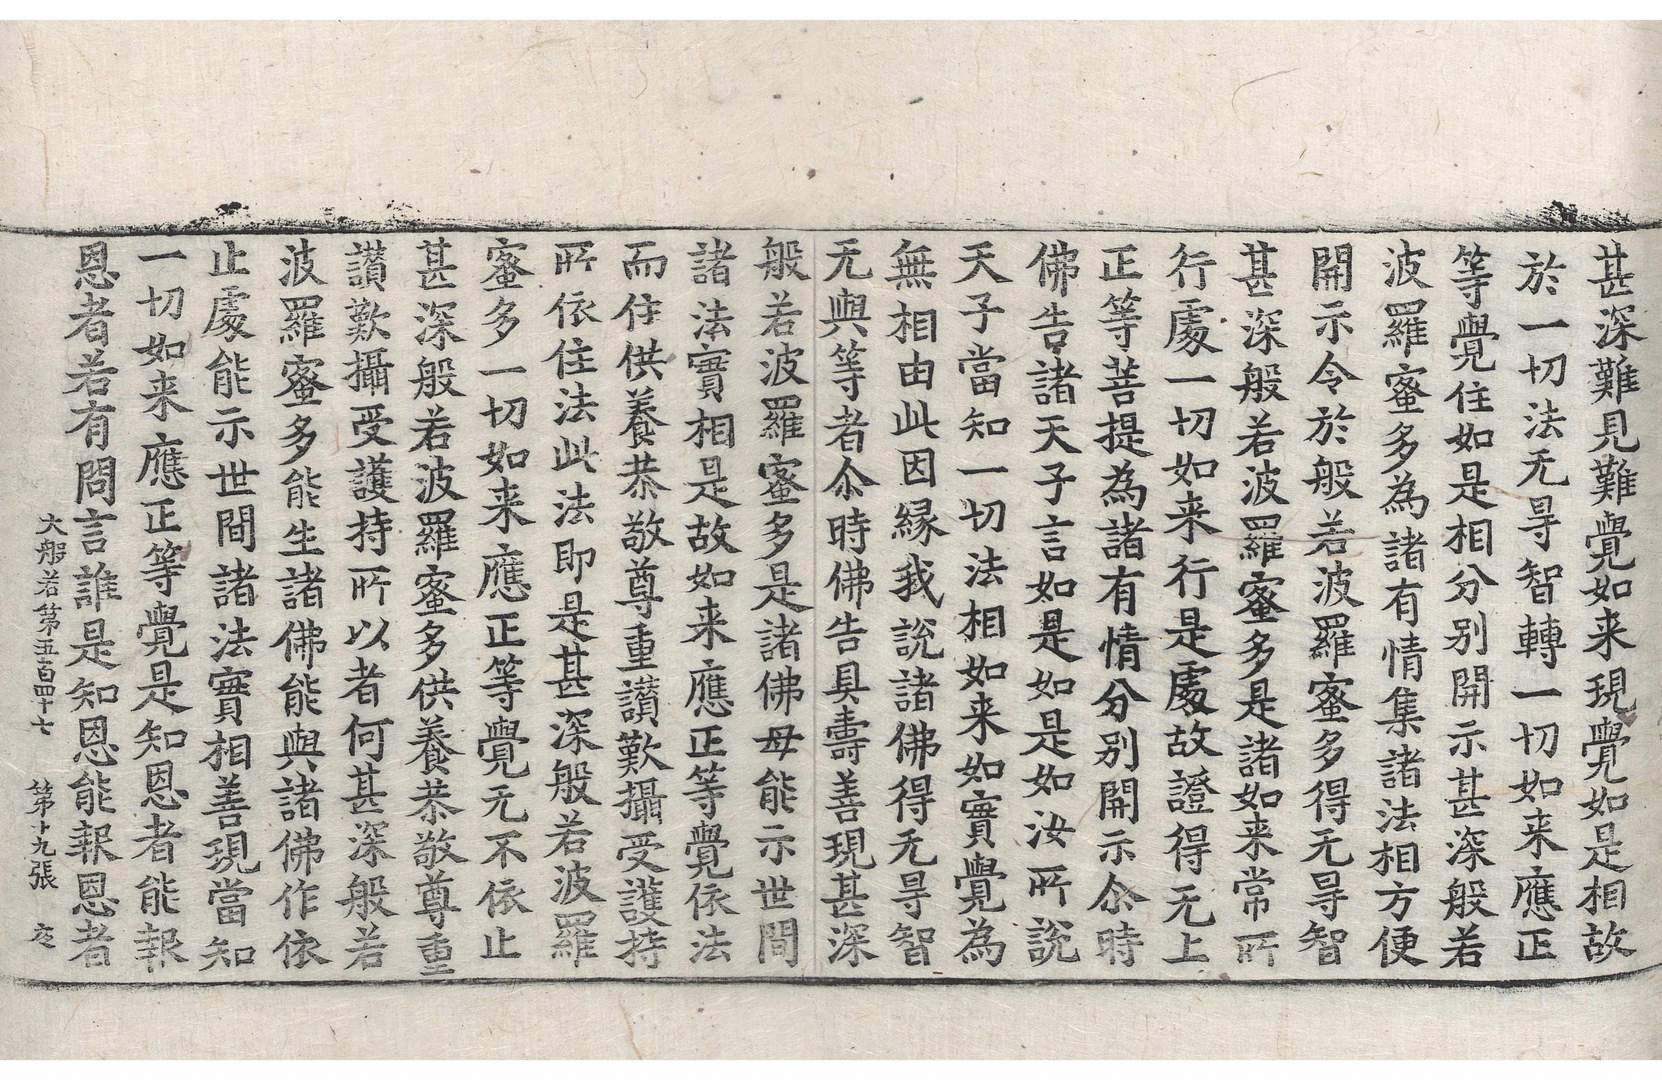 甚深難見難覺如来現覺如是相故
於一切法无㝵智轉一切如来應正
等覺住如是相分别開示甚深般若
波羅蜜多為諸有情集諸法相方便
開示令於般若波羅蜜多得无㝵智
甚深般若波羅蜜多是諸如来常所
行處一切如来行是處故證得无上
正等菩提為諸有情分别開示尒時
佛告諸天子言如是如是如汝所說
天子當知一切法相如来如實覺為
無相由此因緣我說諸佛得无㝵智
无與等者尒時佛告具壽善現甚深
般若波羅蜜多是諸佛母能示世間
諸法實相是故如来應正等覺依法
而住供養恭敬尊重讃歎攝受護持
所依住法此法即是甚深般若波羅
蜜多一切如来應正等覺无不依止
甚深般若波羅蜜多供養恭敬尊重
讃歎攝受護持所以者何甚深般若
波羅蜜多能生諸佛能與諸佛作依
止處能示世間諸法實相善現當知
一切如来應正等覺是知恩者能報
恩者若有問言誰是知恩能報恩者
大般若第五百四十七 第十九張 夜